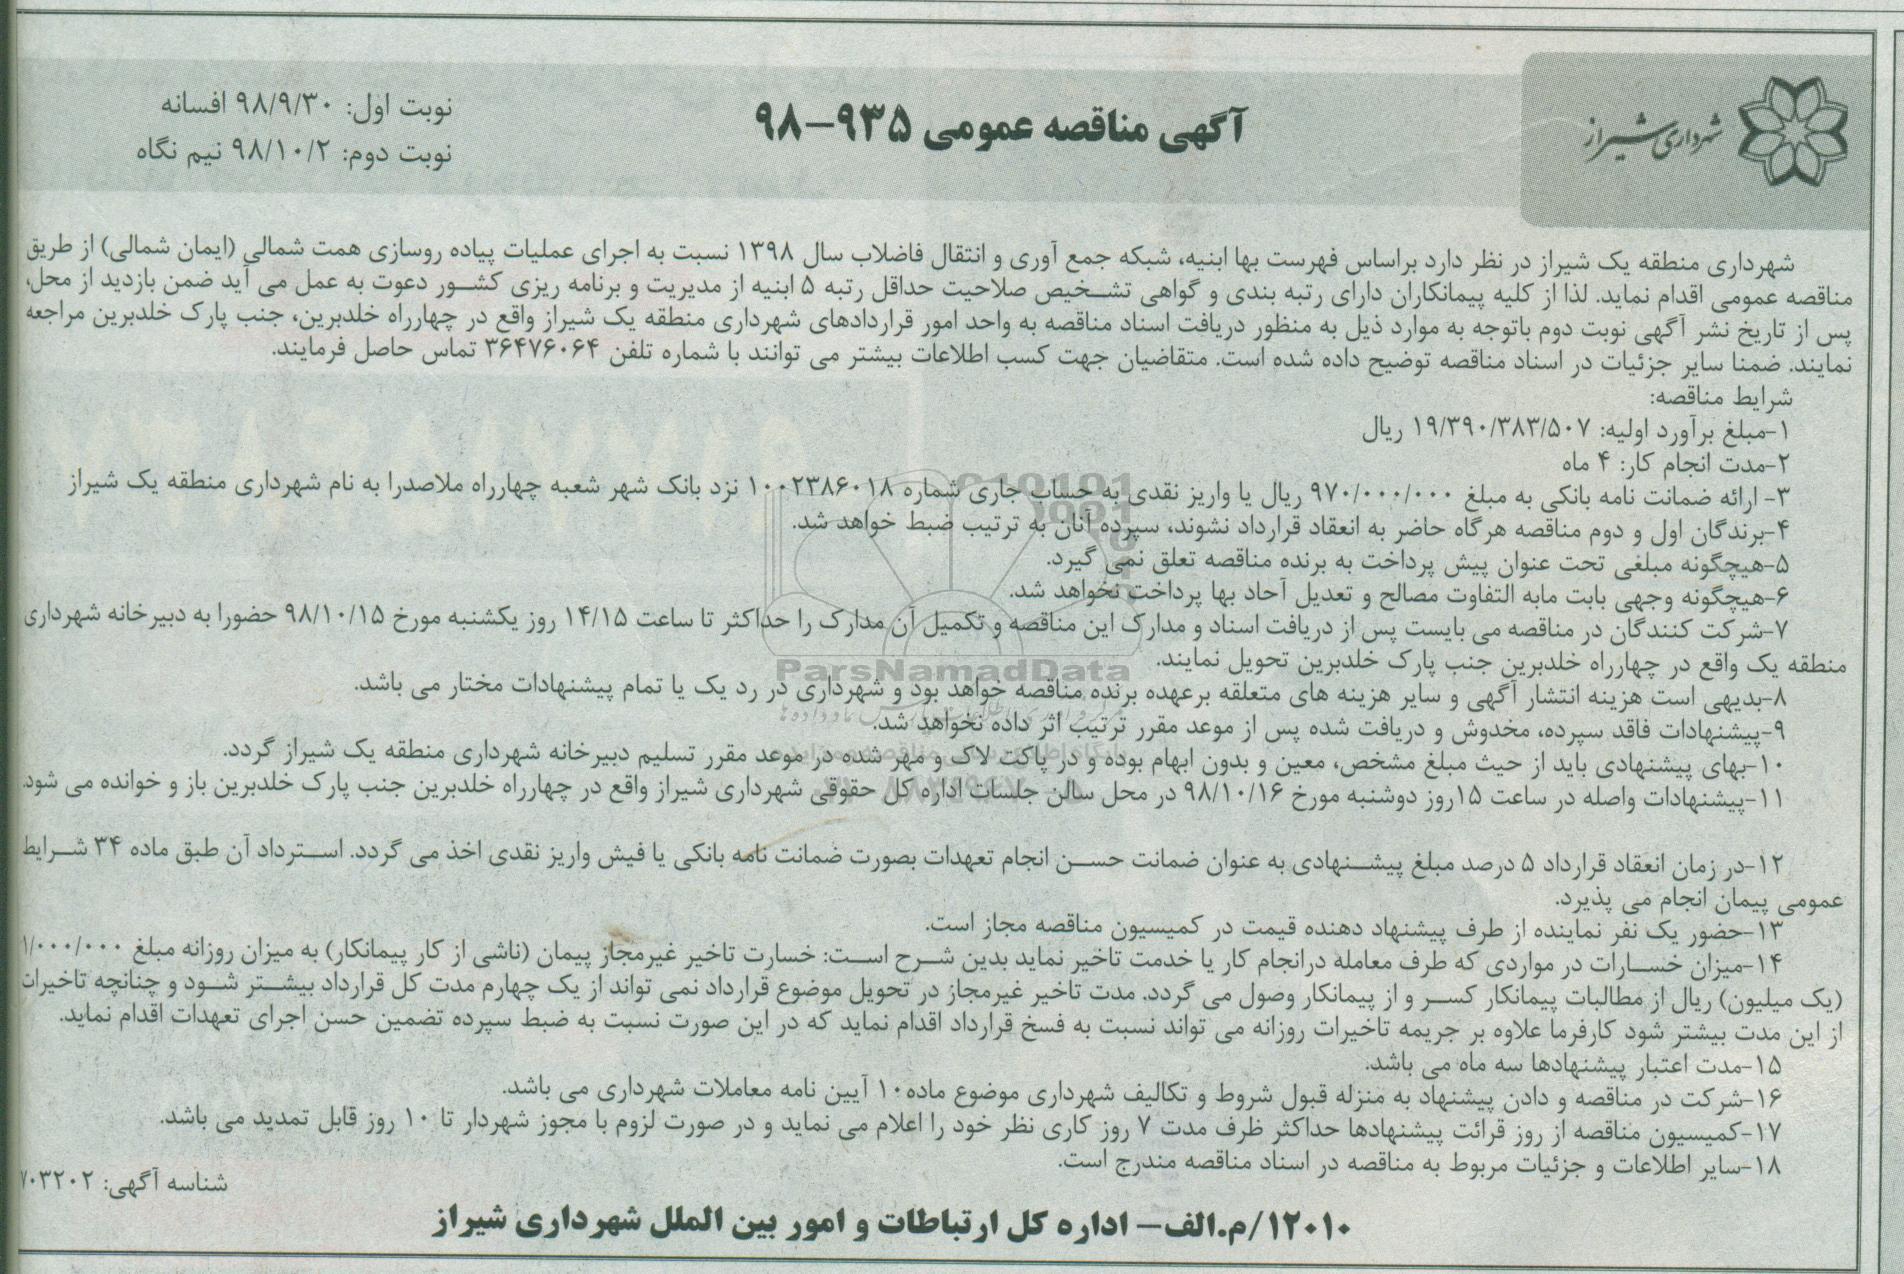 شهرداری شیراز
آگهی مناقصه عمومی ۹۳۵-۹۸
نوبت اول: ۹۸/۹/۳۰ افسانه
نوبت دوم: ۹۸/۱۰/۲ نیم نگاه
شهرداری منطقه یک شیراز در نظر دارد براساس فهرست بها ابنیه، شبکه جمع آوری و انتقال فاضلاب سال ۱۳۹۸ نسبت به اجرای عملیات پیاده روسازی همت شمالی (ایمان شمالی) از طریق
مناقصه عمومی اقدام نماید. لذا از کلیه پیمانکاران دارای رتبه بندی و گواهی تشخیص صلاحیت حداقل رتبه ۵ ابنیه از مدیریت و برنامه ریزی کشور دعوت به عمل می آید ضمن بازدید از محل،
پس از تاریخ نشر آگهی نوبت دوم باتوجه به موارد ذیل به منظور دریافت اسناد مناقصه به واحد امور قراردادهای شهرداری منطقه یک شیراز واقع در چهارراه خلدبرین، جنب پارک خلدبرین مراجعه
نمایند. ضمنا سایر جزئیات در اسناد مناقصه توضیح داده شده است. متقاضیان جهت کسب اطلاعات بیشتر می توانند با شماره تلفن ۳۶۴۷۶۰۶۴ تماس حاصل فرمایند.
شرایط مناقصه:
۱-مبلغ برآورد اولیه: ۱۹/۳۹۰/۳۸۳/۵۰۷ ریال
۲-مدت انجام کار: ۴ ماه
۳- ارائه ضمانت نامه بانکی به مبلغ ۹۷۰/۰۰۰/۰۰۰ ریال یا واریز نقدی به حساب جاری شماره ۱۰۰۲۳۸۶۰۱۸ نزد بانک شهر شعبه چهارراه ملاصدرا به نام شهرداری منطقه یک شیراز
۴-برندگان اول و دوم مناقصه هرگاه حاضر به انعقاد قرارداد نشوند، سپرده آنان به ترتیب ضبط خواهد شد.
۵-هیچگونه مبلغی تحت عنوان پیش پرداخت به برنده مناقصه تعلق نمی گیرد.
۶-هیچگونه وجهی بابت مابه التفاوت مصالح و تعدیل آحاد بها پرداخت نخواهد شد.
۷-شرکت کنندگان در مناقصه می بایست پس از دریافت اسناد و مدارک این مناقصه و تکمیل آن مدارک را حداکثر تا ساعت ۱۴/۱۵ روز یکشنبه مورخ ۹۸/۱۰/۱۵ حضورا به دبیرخانه شهرداری
منطقه یک واقع در چهارراه خلدبرین جنب پارک خلدبرین تحویل نمایند.
ParsNamadData
۸-بدیهی است هزینه انتشار آگهی و سایر هزینه های متعلقه برعهده برنده مناقصه خواهد بود و شهرداری در رد یک یا تمام پیشنهادات مختار می باشد.
۹-پیشنهادات فاقد سپرده، مخدوش و دریافت شده پس از موعد مقرر ترتیب اثر داده نخواهد شد.
۱۰-بهای پیشنهادی باید از حیث مبلغ مشخص، معین و بدون ابهام بوده و در پاکت لاک و مهر شده در موعد مقرر تسلیم دبیرخانه شهرداری منطقه یک شیراز گردد.
۱۱-پیشنهادات واصله در ساعت ۱۵روز دوشنبه مورخ ۹۸/۱۰/۱۶ در محل سالن جلسات اداره کل حقوقی شهرداری شیراز واقع در چهارراه خلدبرین جنب پارک خلدبرین باز و خوانده می شود.
۱۲-در زمان انعقاد قرارداد ۵ درصد مبلغ پیشنهادی به عنوان ضمانت حسن انجام تعهدات بصورت ضمانت نامه بانکی یا فیش واریز نقدی اخذ می گردد. استرداد آن طبق ماده ۳۴ شرایط
عمومی پیمان انجام می پذیرد.
۱۳-حضور یک نفر نماینده از طرف پیشنهاد دهنده قیمت در کمیسیون مناقصه مجاز است.
۱۴-میزان خسارات در مواردی که طرف معامله درانجام کار یا خدمت تاخیر نماید بدین شرح است: خسارت تاخیر غیرمجاز پیمان (ناشی از کار پیمانکار) به میزان روزانه مبلغ ۱/۰۰۰/۰۰۰
(یک میلیون) ریال از مطالبات پیمانکار کسر و از پیمانکار وصول می گردد. مدت تاخیر غیرمجاز در تحویل موضوع قرارداد نمی تواند از یک چهارم مدت کل قرارداد بیشتر شود و چنانچه تاخیرات
از این مدت بیشتر شود کارفرما علاوه بر جریمه تاخیرات روزانه می تواند نسبت به فسخ قرارداد اقدام نماید که در این صورت نسبت به ضبط سپرده تضمین حسن اجرای تعهدات اقدام نماید.
۱۵-مدت اعتبار پیشنهادها سه ماه می باشد.
۱۶-شرکت در مناقصه و دادن پیشنهاد به منزله قبول شروط و تکالیف شهرداری موضوع ماده۱۰ آیین نامه معاملات شهرداری می باشد.
۱۷-کمیسیون مناقصه از روز قرائت پیشنهادها حداکثر ظرف مدت ۷ روز کاری نظر خود را اعلام می نماید و در صورت لزوم با مجوز شهردار تا ۱۰ روز قابل تمدید می باشد.
۱۸-سایر اطلاعات و جزئیات مربوط به مناقصه در اسناد مناقصه مندرج است.
شناسه آگهی: ۷۰۳۲۰۲
۱۲۰۱۰/م.الف- اداره کل ارتباطات و امور بین الملل شهرداری شیراز